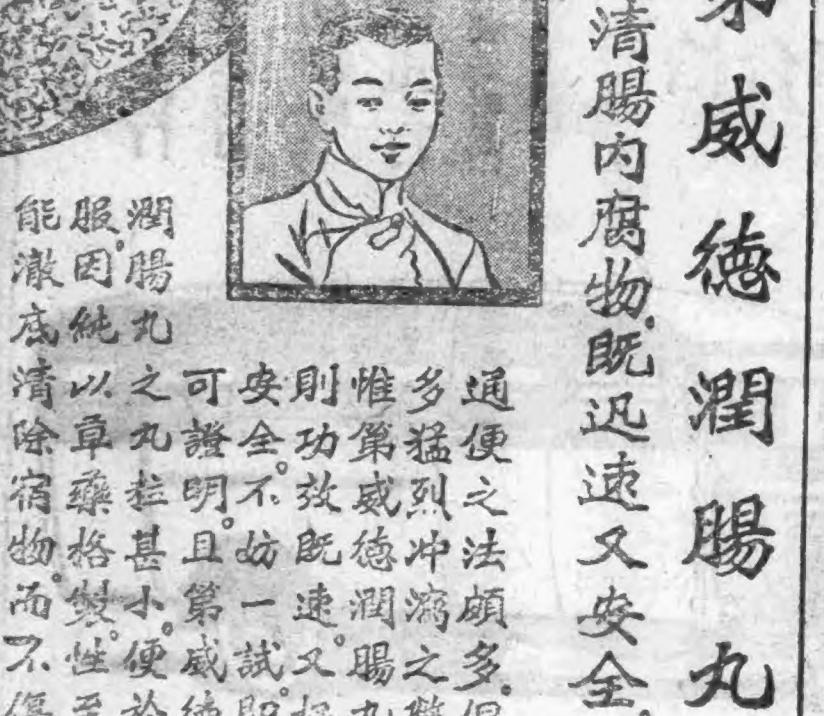 威德潤腸丸
清腸内腐物。既迅速又安全。
通便之法頗多。但
多猛烈冲瀉之
惟第威德潤腸丸
則功效既速。又極
安全。不妨一試。即
可證明。且第威德
潤腸丸之丸粒甚小。便於
服。因純以草藥格製。性至
能澈底清除宿物。而不傷